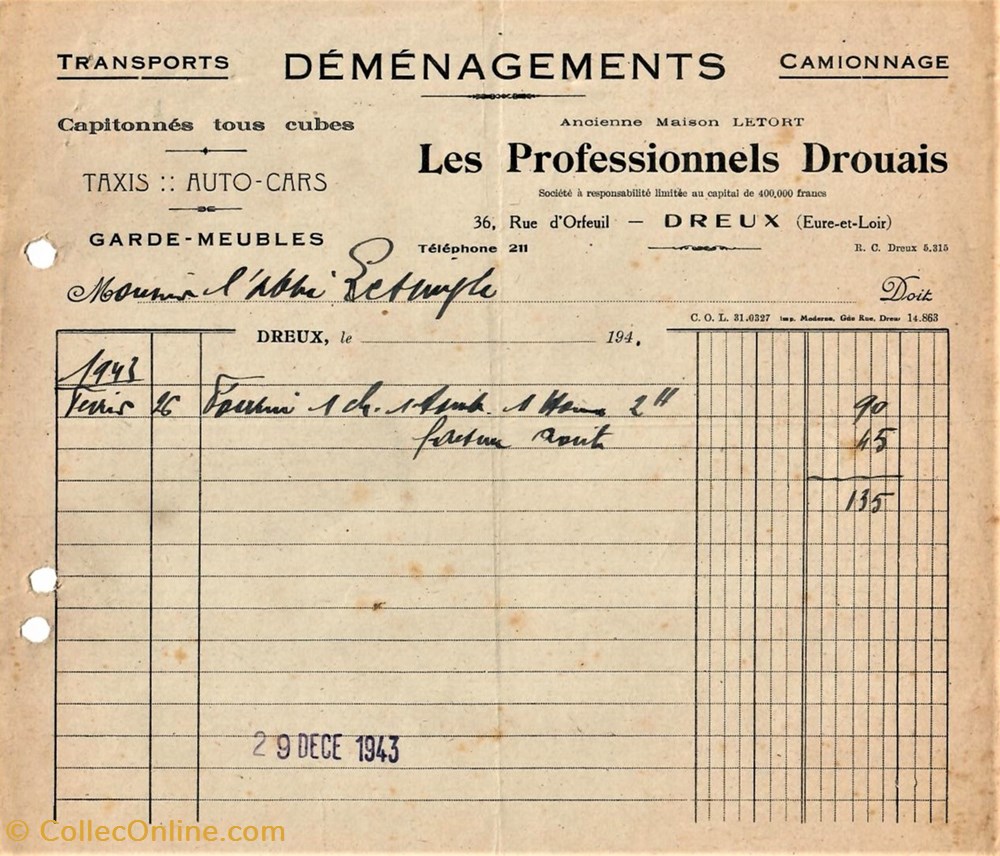 TRANSPORTS DÉMÉNAGEMENTS CAMIONNAGE
Capitonnés tous cubes
TAXIS :: AUTO-CARS
GARDE-MEUBLES
Ancienne Maison LETORT
Les Professionnels Drouais
Société à responsabilité limitée au capital de 400,000 francs
36, Rue d'Orfeuil — DREUX (Eure-et-Loir)
Téléphone 211 R. C. Dreux 5.315
Monsieur l'Abbé Doit
C. O. L. 31.0327 Imp. Moderne, Gde Rue, Dreux 14.863
DREUX, le 194.
1943
Février 26 Fourni 1 ch. 1 1 2 H 90
45
135
29 DECE 1943
© CollecOnline.com